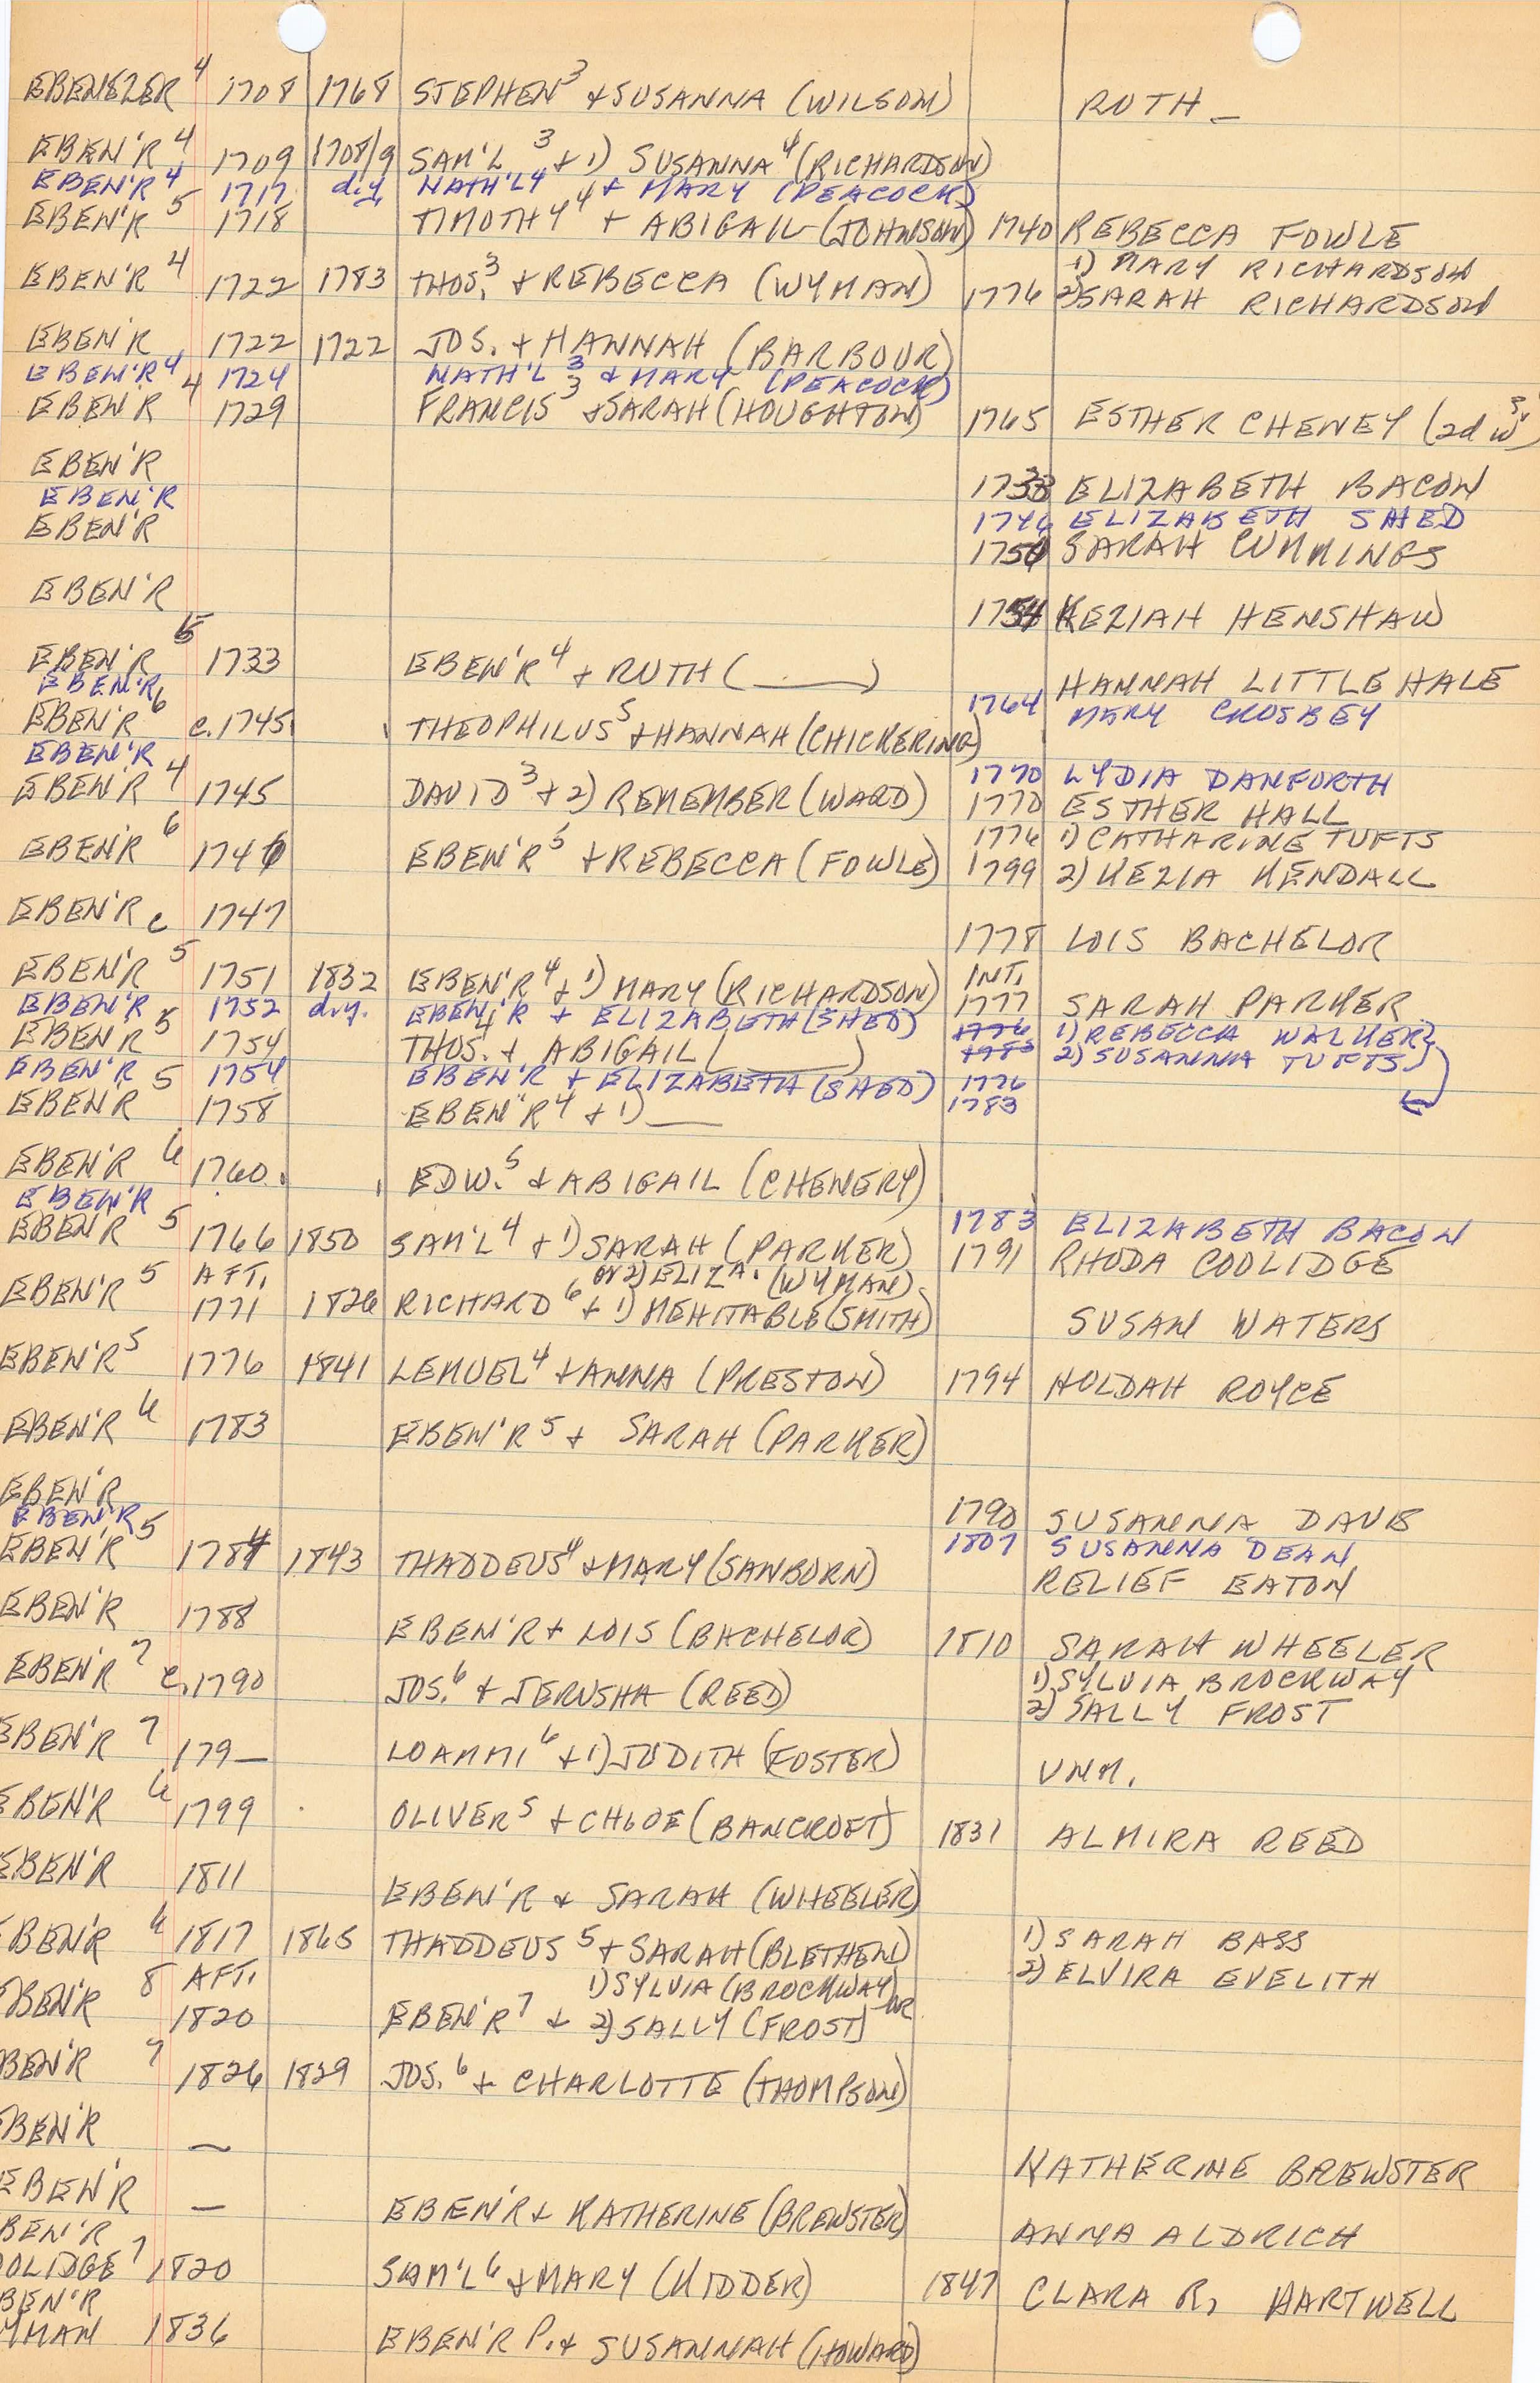 EBENEZER 4 1708 1768 STEPHEN 3 + SUSANNA (WILSON) RUTH —
EBEN'R 4 1709 1708/9 SAM'L 3 + 1) SUSANNA 4 (RICHARDSON)
EBEN'R 4 1717 d.y. NATH'L 4 + MARY (PEACOCK)
EBEN'R 5 1718 TIMOTHY 4 + ABIGAIL (JOHNSON) 1740 REBECCA FOWLE
1) MARY RICHARDSON
EBEN'R 4 1722 1783 THOS. 3 + REBECCA (WYMAN) 1776 2) SARAH RICHARDSON
EBEN'R 1722 1722 JOS. + HANNAH (BARBOUR)
EBEN'R 4 1724 NATH'L 3 & MARY (PEACOCK)
EBEN'R 4 1729 FRANCIS 3 + SARAH (HOUGHTON) 1765 ESTHER CHENEY (2d w
EBEN'R 1733 ELIZABETH BACON
EBEN'R 1746 ELIZABETH SHED
EBEN'R 1750 SARAH CUMMINGS
EBEN'R 1754 KEZIAH HENSHAW
EBEN'R 5 1733 EBEN'R 4 + RUTH (____) HANNAH LITTLEHALE
EBEN'R 1764 MERY CROSBEY
EBEN'R 6 c. 1745 THEOPHILUS 5 + HANNAH (CHICKERING)
EBEN'R 1770 LYDIA DANFORTH
EBEN'R 4 1745 DAVID 3 + 2) REMEMBER (WARD) 1770 ESTHER HALL
1776 1) CATHARINE TUFTS
EBEN'R 6 1746 EBEN'R 5 + REBECCA (FOWLE) 1799 2) KEZIA KENDALL
EBEN'R c 1747 1778 LOIS BACHELOR
INT.
EBEN'R 5 1751 1832 EBEN'R 4 + 1) MARY (RICHARDSON) 1777 SARAH PARKER
EBEN'R 1752 d.y. EBEN'R + ELIZABETH (SHED) 1776 1) REBECCA WALKER
EBEN'R 5 1754 THOS. 4 + ABIGAIL (____) 1783 2) SUSANNA TUFTS
EBEN'R 1754 EBEN'R + ELIZABETH (SHED) 1776
EBEN'R 5 1758 EBEN'R 4 + 1) ____ 1783
EBEN'R 6 1760. EDW. 5 + ABIGAIL (CHENERY)
EBEN'R 1783 ELIZABETH BACON
EBEN'R 5 1766 1850 SAM'L 4 + 1) SARAH (PARKER) 1791 RHODA COOLIDGE
AFT. or 2) ELIZA. (WYMAN)
EBEN'R 5 1771 1826 RICHARD 6 + 1) MEHITABLE (SMITH) SUSAN WATERS
EBEN'R 5 1776 1841 LEMUEL 4 + ANNA (PRESTON) 1794 HOLDAH ROYCE
EBEN'R 6 1783 EBEN'R 5 + SARAH (PARKER)
EBEN'R 1790 SUSANNA DAVIS
EBEN'R 1807 SUSANNA DEAN
EBEN'R 5 1784 1843 THADDEUS 4 + MARY (SANBORN) RELIEF EATON
EBEN'R 1788 EBEN'R + LOIS (BACHELOR) 1810 SARAH WHEELER
1) SYLVIA BROCKWAY
EBEN'R 7 c. 1790 JOS. 6 + JERUSHA (REED) 2) SALLY FROST
EBEN'R 7 179— LOAMMI 6 + 1) JUDITH (FOSTER) UNM.
EBEN'R 6 1799 OLIVER 5 + CHLOE (BANCROFT) 1831 ALMIRA REED
EBEN'R 1811 EBEN'R + SARAH (WHEELER)
BEN'R 6 1817 1865 THADDEUS 5 + SARAH (BLETHEN) 1) SARAH BASS
8 AFT. 1) SYLVIA (BROCKWAY) OR 2) ELVIRA EVELITH
BEN'R 1820 EBEN'R 7 + 2) SALLY (FROST)
BEN'R 7 1826 1829 JOS. 6 + CHARLOTTE (THOMPSON)
BEN'R — KATHERINE BREWSTER
EBEN'R — EBEN'R + KATHERINE (BREWSTER) ANNA ALDRICH
BEN'R
OLIDGE 7 1820 SAM'L 6 + MARY (KIDDER) 1847 CLARA R. HARTWELL
BEN'R
YMAN 1836 EBEN'R P. + SUSANNAH (HOWARD)